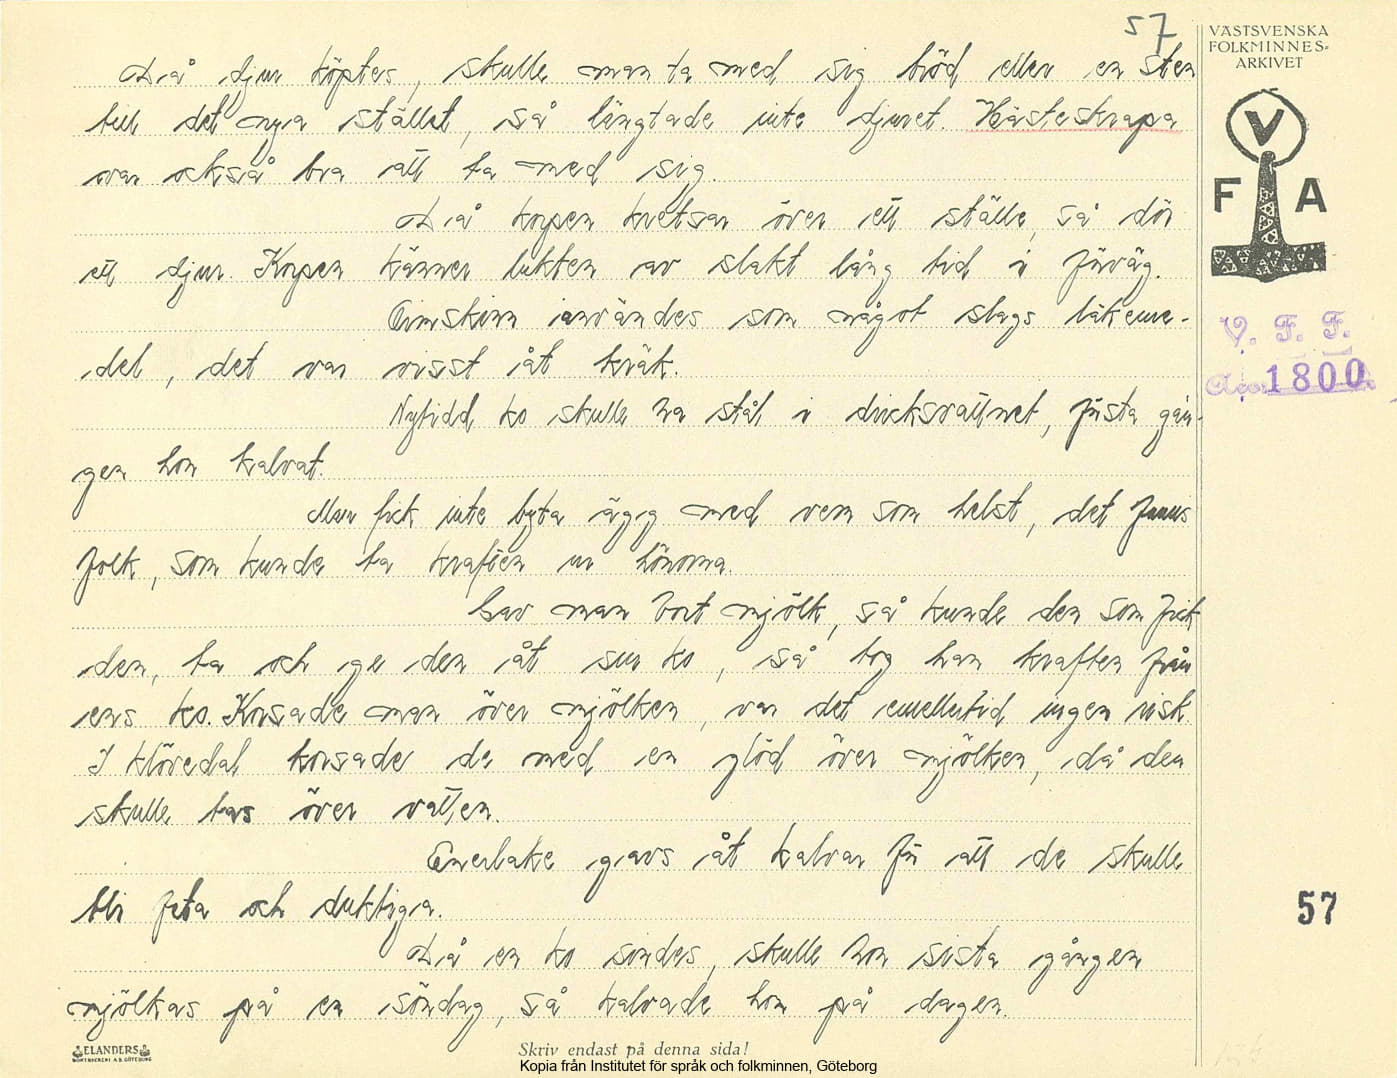 57
VÄSTSVENSKA
FOLKMINNES-
ARKIVET
V
F A
V. F. F.
Acc. 1800.
Då djur köptes, skulle man ta med sig bröd eller en sten
till det nya stället, så längtade inte djuret. Hästeskrapa
var också bra att ta med sig.
Då korpen kretsar över ett ställe, så dör
ett djur. Korpen känner lukten av slakt lång tid i förväg.
Ormskinn användes som något slags läkeme-
del, det var visst åt kräk.
Nyfödd ko skulle ha stål i dricksvattnet, första gån-
gen hon kalvat.
Man fick inte byta ägg med vem som helst, det fanns
folk, som kunde ta kraften ur hönorna.
Gav man bort mjölk, så kunde den som fick
den, ta och ge den åt sin ko, så tog han kraften från
ens ko. Korsade man över mjölken, var det emellertid ingen risk.
I Klövedal korsade de med en glöd över mjölken, då den
skulle tas över vatten.
Enerlake gavs åt kalvar för att de skulle
bli feta och duktiga.
57
Då en ko sindes, skulle hon sista gången
mjölkas på en söndag, så kalvade hon på dagen.
ELANDERS
BOKTRYCKERI A.B. GÖTEBORG
Skriv endast på denna sida!
Kopia från Institutet för språk och folkminnen, Göteborg